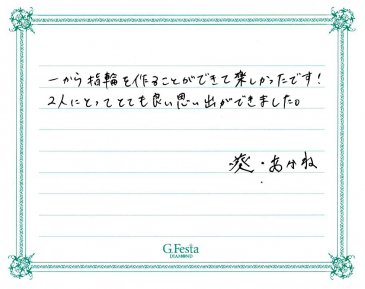 一から指輪を作ることができて楽しかったです!
2人にとってとても良い思い出ができました。
葵・あかね
G.Festa
DIAMOND